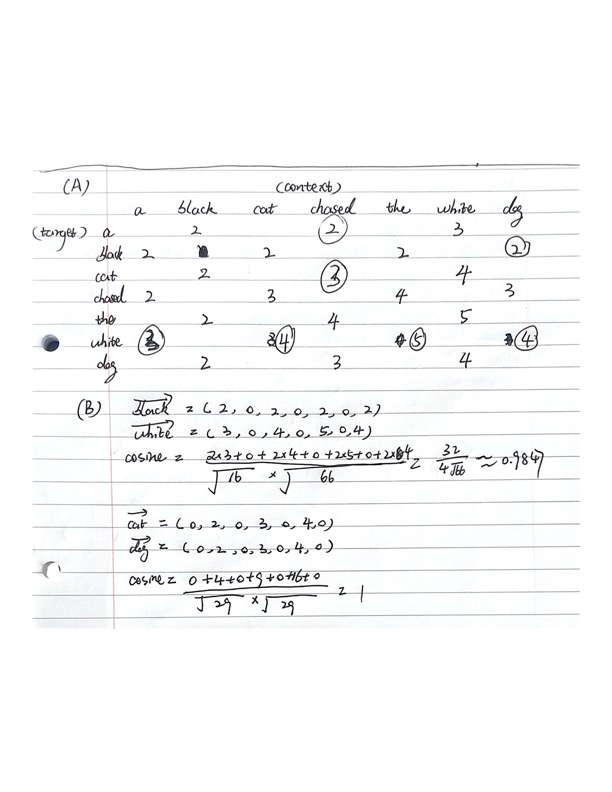 (A) (context)
a black cat chased the white dog
(target) a 2 2 3
black 2 2 2 2
cat 2 3 4
chased 2 3 4 3
the 2 4 5
white 3 4 5 4
dog 2 3 4
(B) black = (2, 0, 2, 0, 2, 0, 2)
white = (3, 0, 4, 0, 5, 0, 4)
cosine = 2×3+0+2×4+0+2×5+0+2×4 / √16 × √66 = 32 / 4√66 ≈ 0.984
cat = (0, 2, 0, 3, 0, 4, 0)
dog = (0, 2, 0, 3, 0, 4, 0)
cosine = 0+4+0+9+0+16+0 / √29 × √29 = 1